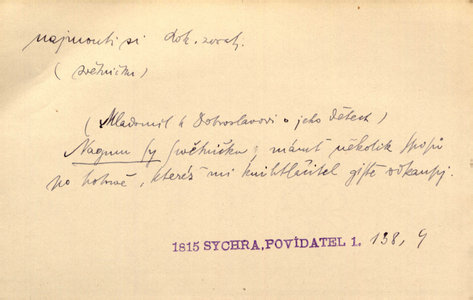 najmouti si dok. zvratn.
(světničku)
(Mladomil k Dobroslavovi o jeho dětech)
Nagmu sy swětničku, mámť několik spisů
po hotowě, kteréž mi knihtlačitel gistě odkaupj.
1815 SYCHRA, POVÍDATEL 1. 138, 9